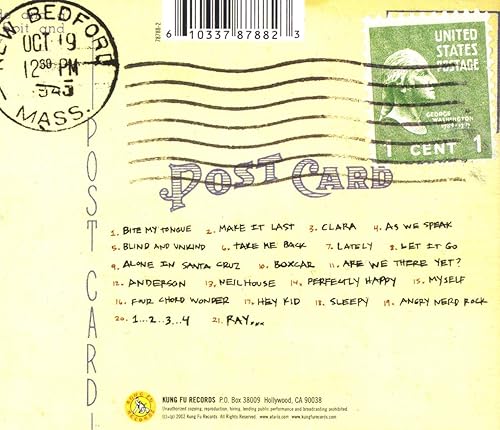 NEW BEDFORD
OCT 19
12 30 PM
MASS.
bit and
78788-2
6 10337 87882 3
UNITED
STATES
POSTAGE
GEORGE
WASHINGTON
1789-1797
1 CENT 1
POST CARD
POST CARD
1. BITE MY TONGUE 2. MAKE IT LAST 3. CLARA 4. AS WE SPEAK
5. BLIND AND UNKIND 6. TAKE ME BACK 7. LATELY 8. LET IT GO
9. ALONE IN SANTA CRUZ 10. BOXCAR 11. ARE WE THERE YET?
12. ANDERSON 13. NEILHOUSE 14. PERFECTLY HAPPY 15. MYSELF
16. FOUR CHORD WONDER 17. HEY KID 18. SLEEPY 19. ANGRY NERD ROCK
20. 1...2...3...4 21. RAY...
KUNG FU
RECORDS
KUNG FU RECORDS P.O. Box 38009 Hollywood, CA 90038
Unauthorized copying, reproduction, hiring, lending public performance and broadcasting prohibited.
(c)+(p) 2002 Kung Fu Records. All Rights Reserved. www.ataris.com www.kungfurecords.com